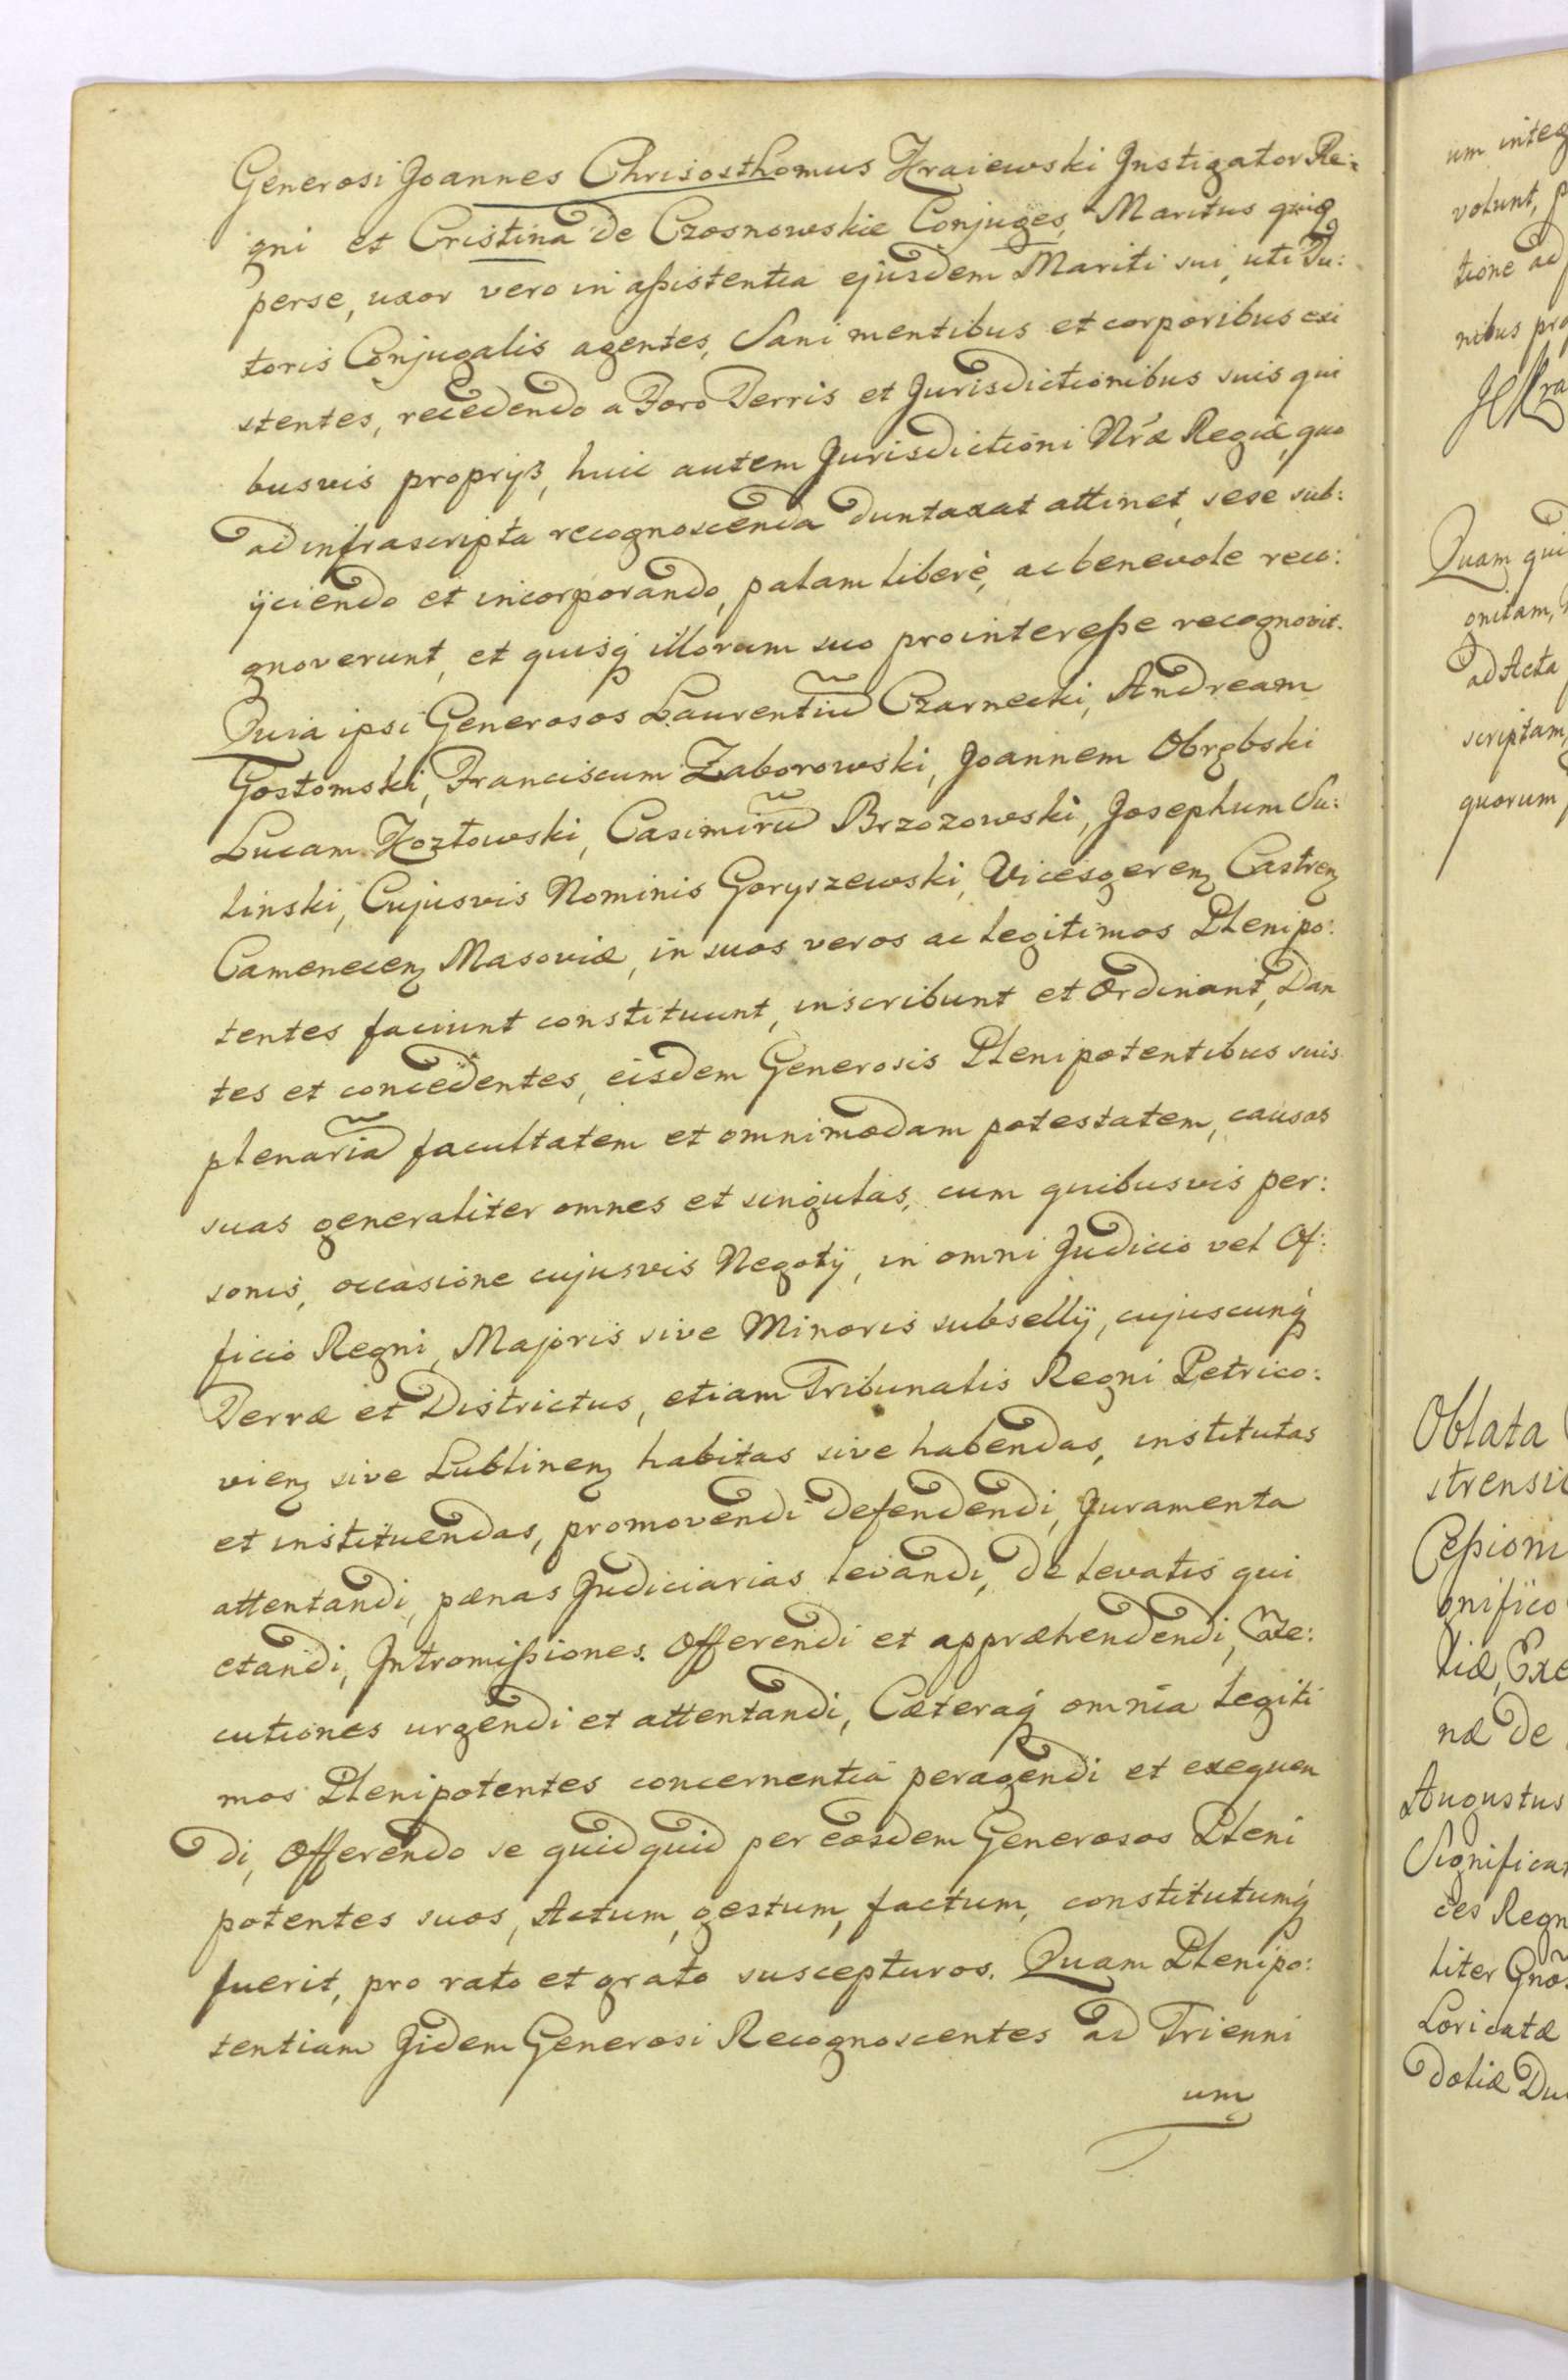 Generosi Joannes Chrisosthomus Kraiewski Instigator Re:
gni et Cristina de Czosnowskie Conjuges, Maritus quidē
perse, uxor vero in aßistentia ejusdem Mariti sui, uti Tu:
toris Conjugalis agentes, Sani mentibus et corporibus exi
stentes, recedendo a Foro Terris et Jurisdictionibus suis qui
busvis proprijs, huic autem Jurisdictioni Nrǽ Regiæ, quo
ad infrascripta recognoscenda duntaxat attinet, sese sub:
ijciendo et incorporando, palam liberè, ac benevole reco:
gnoverunt, et quisq́ illorum suo prointereße recognovit.
Quia ipsi Generosos Laurentiũ Czarnecki, Andream
Gostomski, Franciscum Zaborowski, Joannem Obrębski
Lucam Kozłowski, Casimirũ Brzozowski, Josephum Su:
linski, Cujusvis Nominis Goryszewski, Vicesgerenȝ Castrenȝ
Camenecenȝ Masoviæ, in suos veros ac legitimos Plenipo:
tentes faciunt constituunt, inscribunt et Ordinant, Dan
tes et concedentes, eisdem Generosis Plenipotentibus suis
plenariã facultatem et omnimodam potestatem, causas
suas generaliter omnes et singulas, cum quibusvis per:
sonis, occasione cujusvis Negotij, in omni Judicio vel Of:
ficio Regni, Majoris sive Minoris subsellij, cujuscunq́
Terræ et Districtus, etiam Tribunalis Regni Petrico:
vienȝ sive Lublinenȝ habitas sive habendas, institutas
et instituendas, promovendi defendendi, Juramenta
attentandi, pænas Judiciarias levandi, de levatis qui
etandi, Intromißiones Offerendi et appræhendendi, Exe:
cutiones urgendi et attentandi, Cæteraq́ omnia legiti
mos Plenipotentes concernentia peragendi et exequen
di, Offerendo se quidquid per eosdem Generosos Pleni
potentes suos, Actum, gestum, factum, constitutumq́
fuerit, pro rato et grato suscepturos. Quam Plenipo:
tentiam Jidem Generosi Recognoscentes ad Trienni
um
um integ
volunt,
tione ad
nibus pro
Quam qui
gnitam,
ad Acta
scriptam,
quorum
Oblata
strensi
Ceßioni
gnifico
liæ, Exc
næ de
Augustus
Significat
ces Regn
liter Gnos
Loricatæ
doliæ Du